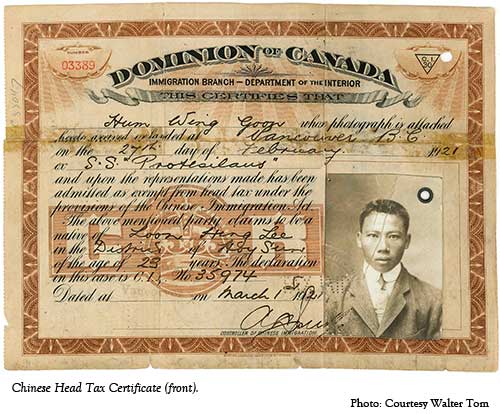 NUMBER
03389
C.I.
30
DOMINION OF CANADA
IMMIGRATION BRANCH — DEPARTMENT OF THE INTERIOR
THIS CERTIFIES THAT
Hum Wing Goon whose photograph is attached
hereto arrived or landed at Vancouver B.C
on the 27th day of February 1921
ex S.S. "Protesilaus"
and upon the representations made has been
admitted as exempt from head tax under the
provisions of the Chinese Immigration Act.
The above mentioned party claims to be a
native of Hang Lee
in the District of Hoy Sun
of the age of 23 years. The declaration
in this case is C.I. No. 35974
Dated at on March 1st 1921
CONTROLLER OF CHINESE IMMIGRATION.
Chinese Head Tax Certificate (front).
Photo: Courtesy Walter Tom